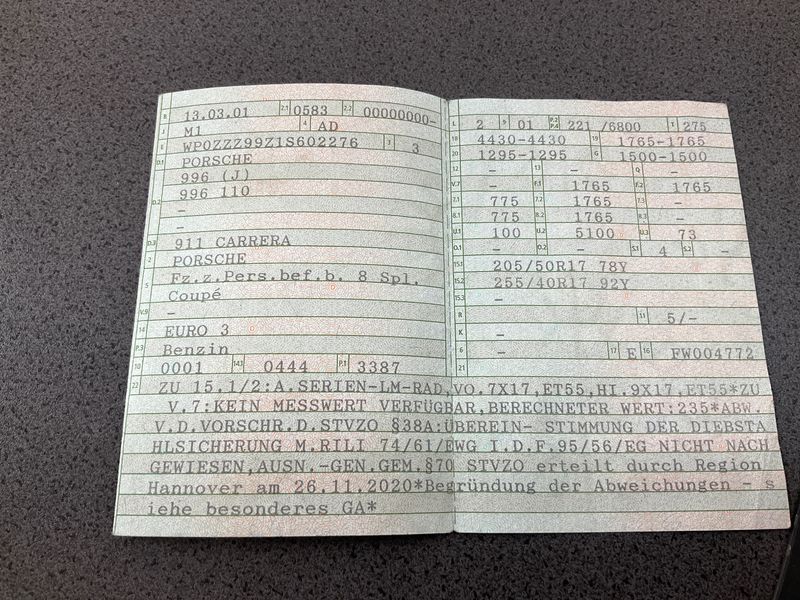 B 13.03.01 2.1 0583 2.2 00000000-
J M1 4 AD
E WP0ZZZ99Z1S602276 3 3
D.1 PORSCHE
996 (J)
D.2 996 110
-
-
D.3 911 CARRERA
2 PORSCHE
5 Fz.z.Pers.bef.b. 8 Spl.
Coupé
V.9 -
14 EURO 3
P.3 Benzin
10 0001 14.1 0444 P.1 3387
L 2 9 01 P.2 P.4 221 /6800 T 275
18 4430-4430 19 1765-1765
20 1295-1295 G 1500-1500
12 - 13 - Q -
V.7 - F.1 1765 F.2 1765
7.1 775 7.2 1765 7.3 -
8.1 775 8.2 1765 8.3 -
U.1 100 U.2 5100 U.3 73
O.1 - O.2 - S.1 4 S.2 -
15.1 205/50R17 78Y
15.2 255/40R17 92Y
15.3 -
R 11 5/-
K -
6 - 17 E 16 FW004772
21
22 ZU 15.1/2:A.SERIEN-LM-RAD,VO.7X17,ET55,HI.9X17,ET55*ZU
V.7:KEIN MESSWERT VERFÜGBAR,BERECHNETER WERT:235*ABW.
V.D.VORSCHR.D.STVZO §38A:ÜBEREIN- STIMMUNG DER DIEBSTA
HLSICHERUNG M.RILI 74/61/EWG I.D.F.95/56/EG NICHT NACH
GEWIESEN,AUSN.-GEN.GEM.§70 STVZO erteilt durch Region
Hannover am 26.11.2020*Begründung der Abweichungen - s
iehe besonderes GA*